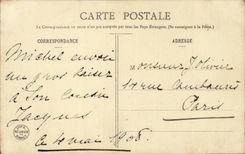 CARTE POSTALE
La Correspondance au recto n'est pas acceptée par tous les Pays Étrangers. (Se renseigner à la Poste).
CORRESPONDANCE
ADRESSE
Michel envoie
un gros baiser
à son cousin
Jacques
ce 4 mai 1908.
Monsieur J. Olivier
14 rue
Paris